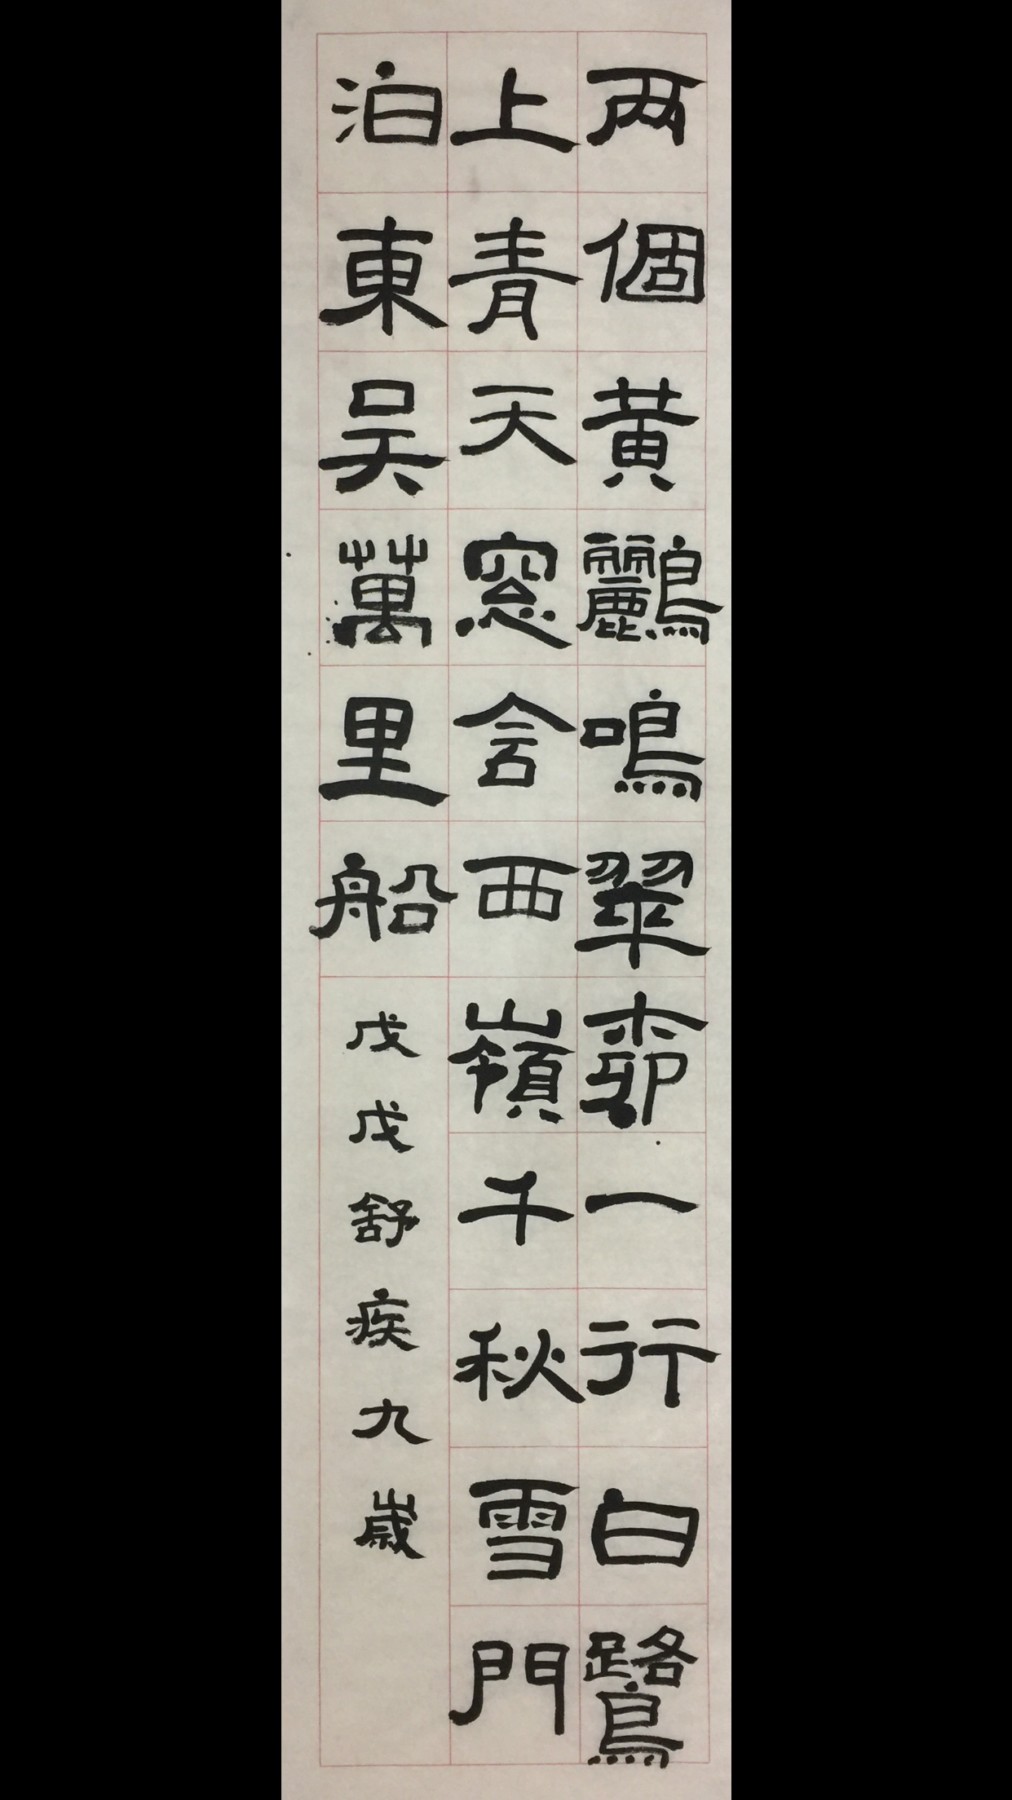 两個黄鸝鳴翠柳一行白鷺
上青天窓含西嶺千秋雪門
泊東吴萬里船
戊戌舒疾九歲